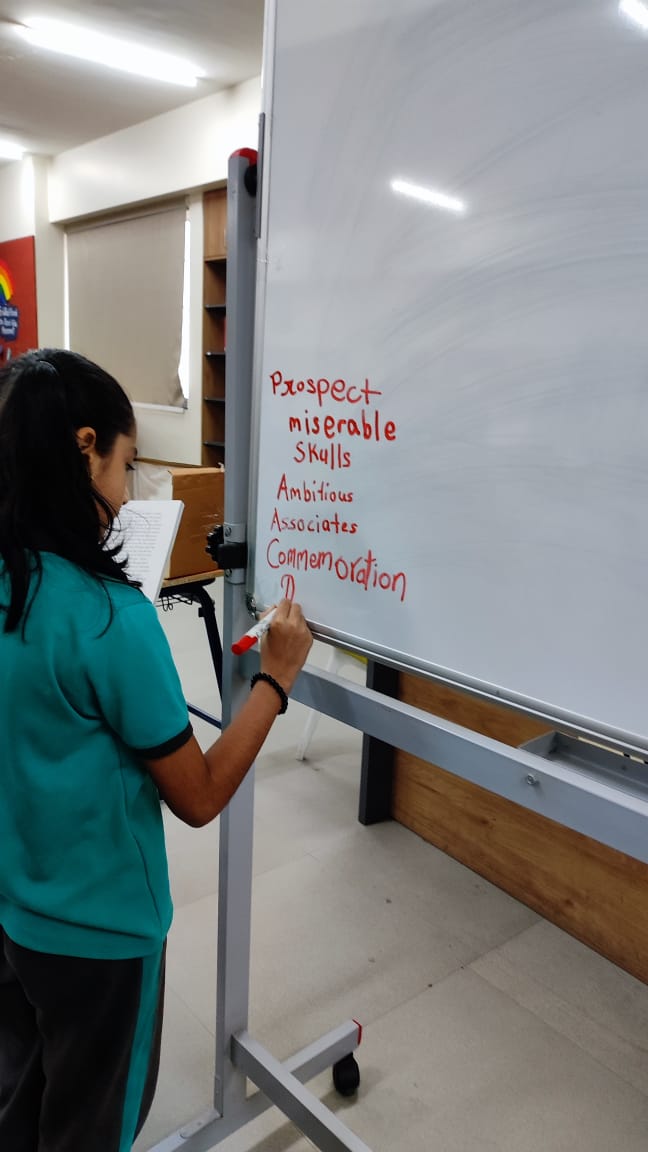 Prospect
miserable
Skulls
Ambitious
Associates
Commemoration
D